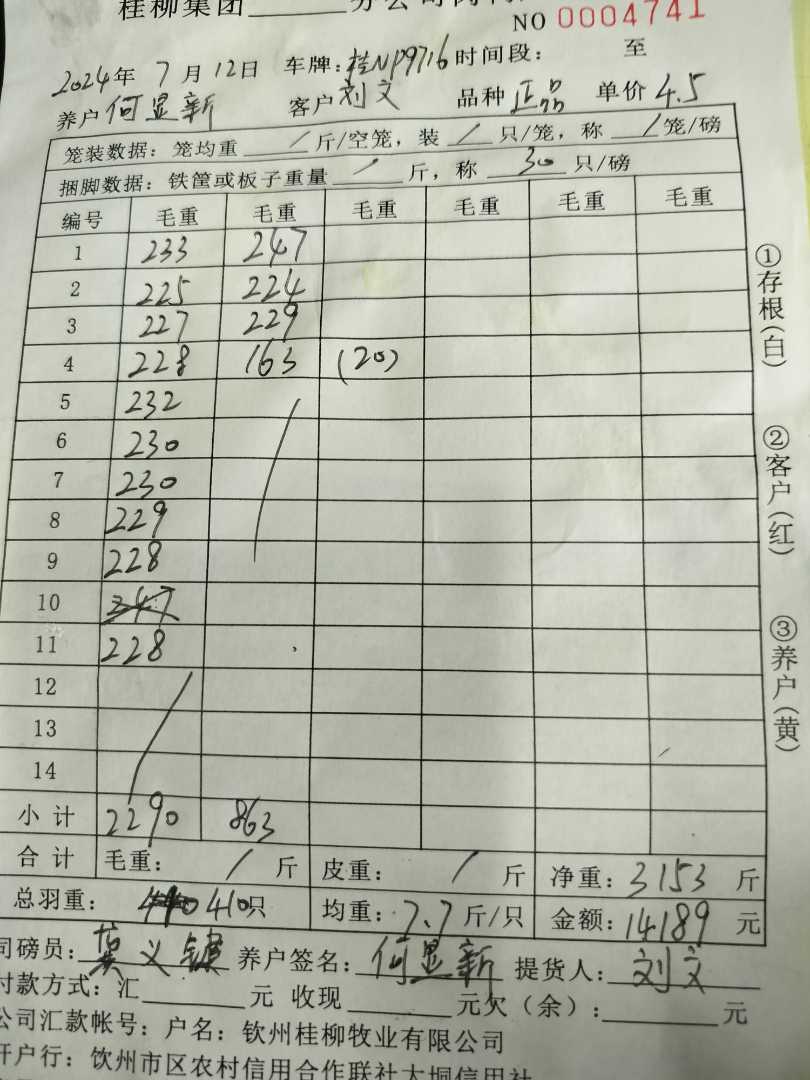 桂柳集团
NO 0004741
2024年 7月 12日 车牌:桂NP9716 时间段: 至
养户 何显新 客户 刘文 品种 正品 单价 4.5
笼装数据: 笼均重 / 斤/空笼, 装 / 只/笼, 称 / 笼/磅
捆脚数据: 铁筐或板子重量 / 斤, 称 30 只/磅
编号 毛重 毛重 毛重 毛重 毛重 毛重
1 233 247
2 225 224
3 227 229
4 228 163 (20)
5 232
6 230
7 230
8 229
9 228
10 247
11 228
12
13
14
小计 2290 863
合计 毛重: / 斤 皮重: / 斤 净重: 3153 斤
总羽重: 410只 均重: 7.7 斤/只 金额: 14189 元
司磅员: 养户签名: 何显新 提货人: 刘文
付款方式: 汇 元 收现 元欠(余): 元
公司汇款帐号: 户名: 钦州桂柳牧业有限公司
开户行: 钦州市区农村信用合作联社大垌信用社
①存根(白)
②客户(红)
③养户(黄)